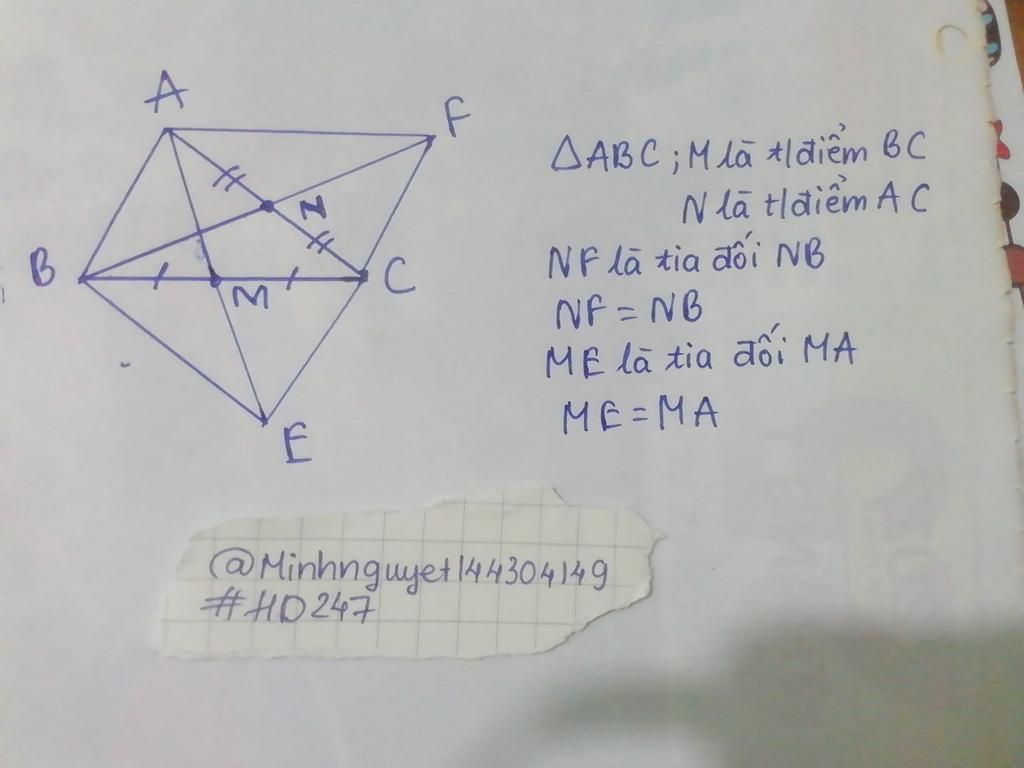 A
F
N
B
M
C
E
△ABC; M là t/điểm BC
N là t/điểm AC
NF là tia đối NB
NF = NB
ME là tia đối MA
ME = MA
@Minhnguyet144304149
#HD247